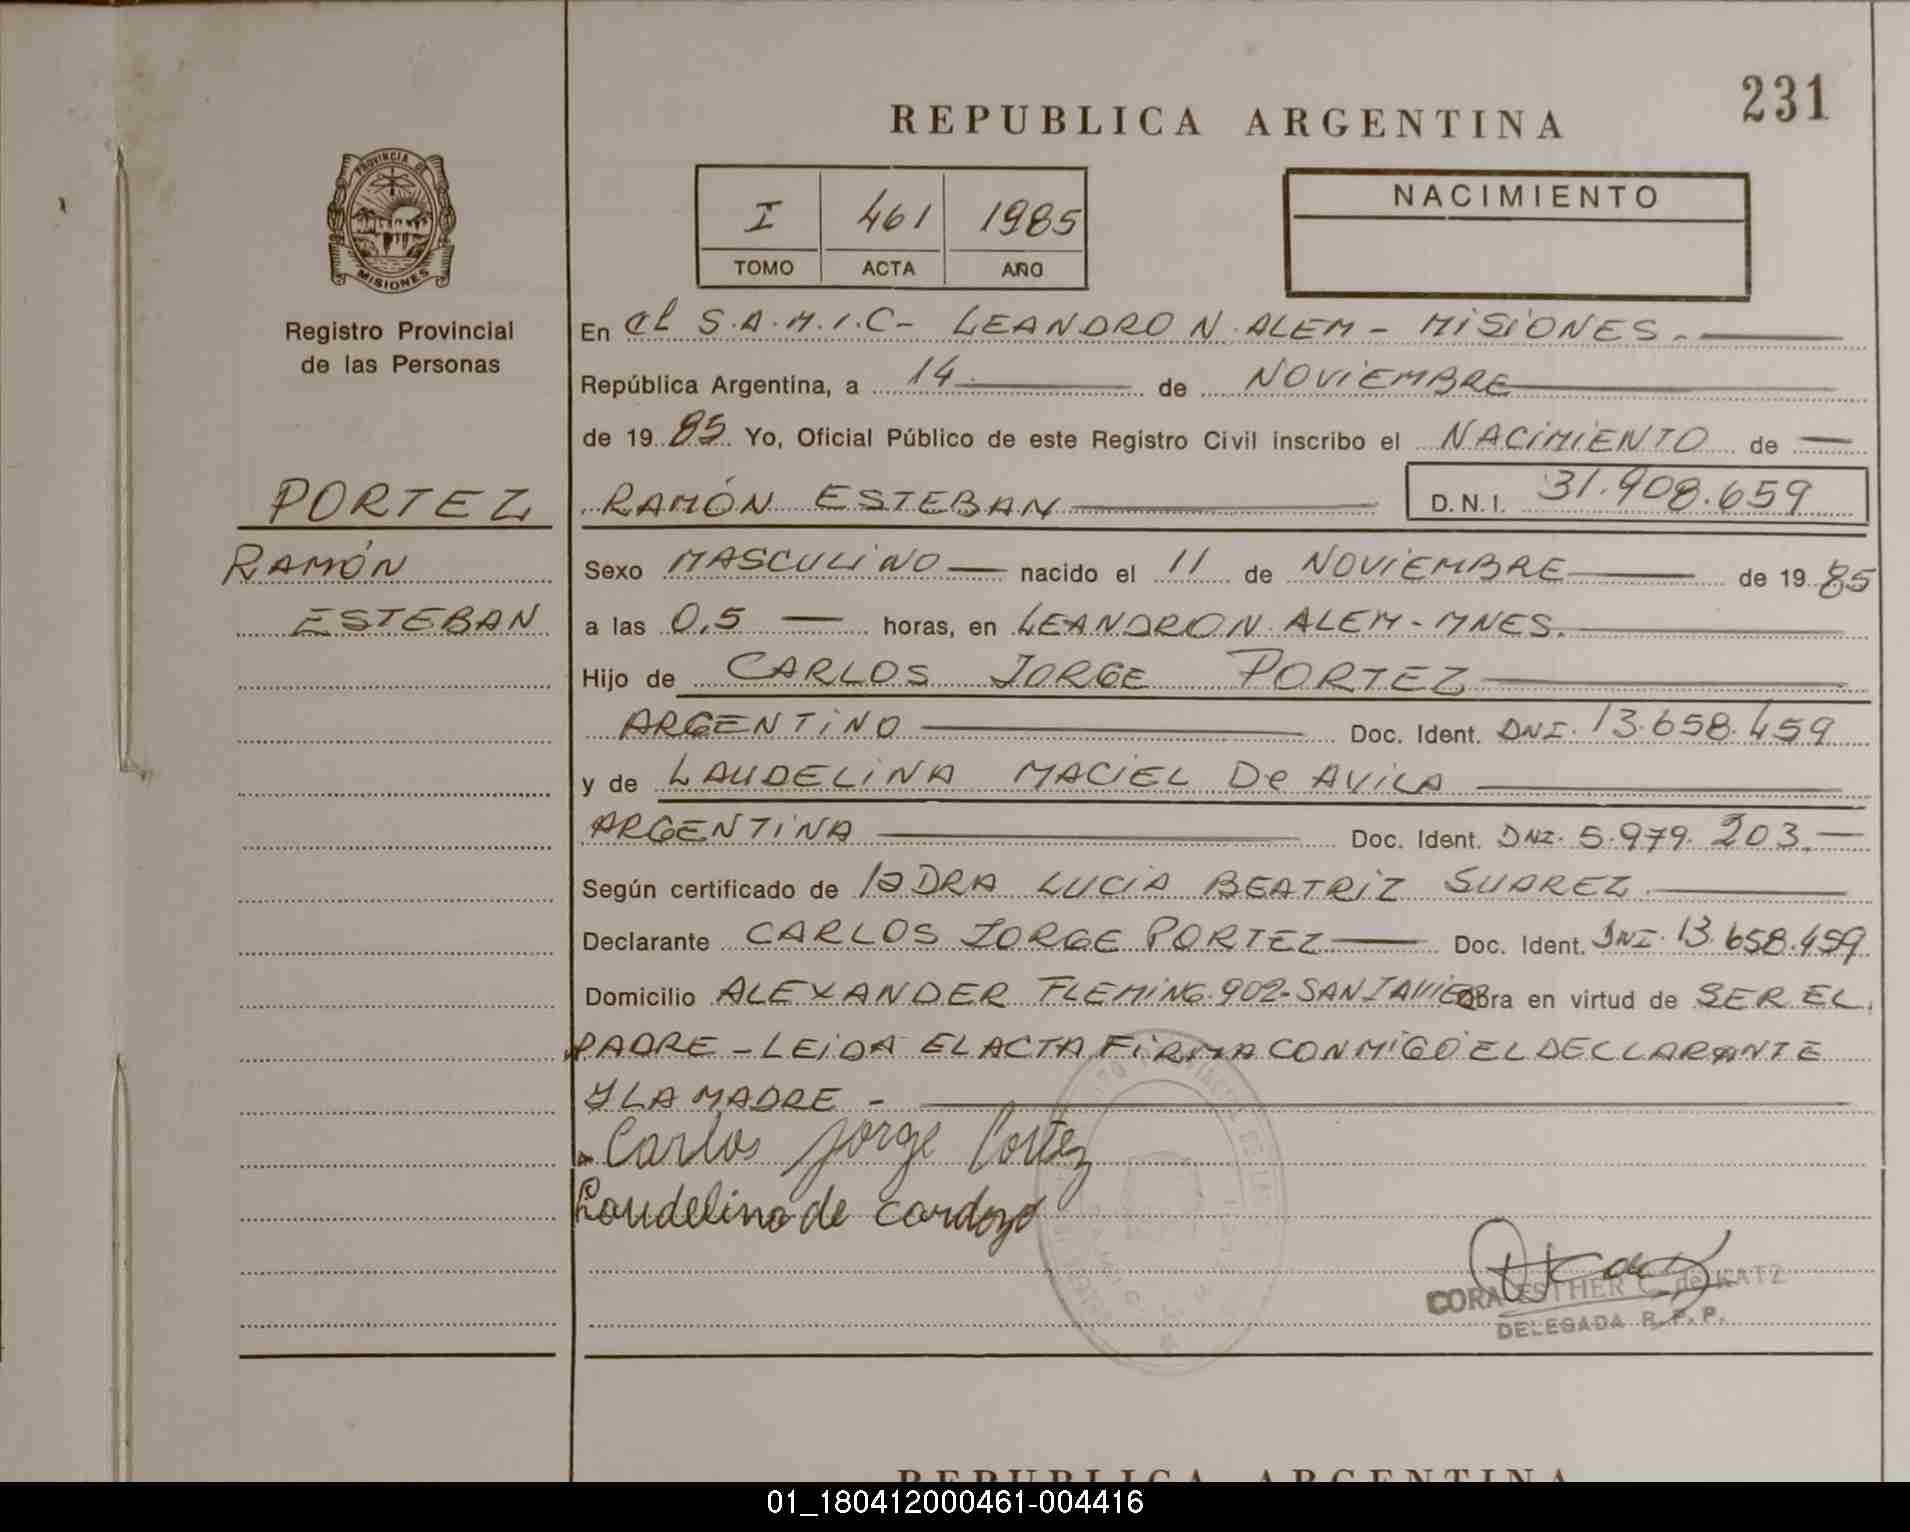 231
REPUBLICA ARGENTINA
PROVINCIA DE
MISIONES
Registro Provincial
de las Personas
I 461 1985
TOMO ACTA AÑO
NACIMIENTO
En el S.A.M.I.C - LEANDRO N. ALEM - MISIONES.
República Argentina, a 14 de NOVIEMBRE
de 19 85 Yo, Oficial Público de este Registro Civil inscribo el NACIMIENTO de
PORTEZ
RAMÓN
ESTEBAN
RAMÓN ESTEBAN D.N.I. 31.908.659
Sexo MASCULINO nacido el 11 de NOVIEMBRE de 19 85
a las 0,5 horas, en LEANDRO N. ALEM - MNES.
Hijo de CARLOS JORGE PORTEZ
ARGENTINO Doc. Ident. DNI. 13.658.459
y de LAUDELINA MACIEL De AVILA
ARGENTINA Doc. Ident. DNI. 5.979.203.
Según certificado de la DRA LUCIA BEATRIZ SUAREZ
Declarante CARLOS JORGE PORTEZ Doc. Ident. DNI. 13.658.459
Domicilio ALEXANDER FLEMING. 902 - SAN JAVIER Obra en virtud de SER EL
PADRE - LEIDA EL ACTA FIRMA CONMIGO EL DECLARANTE
Y LA MADRE -
Carlos Jorge Portez
Laudelina de cardozo
CORA ESTHER C. de KATZ
DELEGADA R.P.P.
REPUBLICA ARGENTINA
01_180412000461-004416